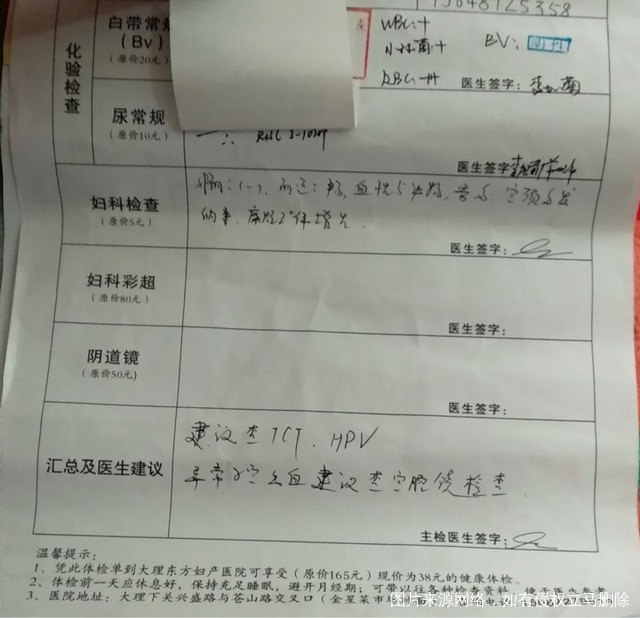 化验检查
白带常规
(Bv)
(原价20元)
WBC:+
小杆菌+
BV: 阴性
RBC:++
医生签字:
尿常规
(原价10元)
RBC 3-10/HP
医生签字
妇科检查
(原价5元)
外阴:(-)、阴道:畅,血性分泌物,
医生签字:
妇科彩超
(原价80元)
医生签字:
阴道镜
(原价50元)
医生签字:
汇总及医生建议
建议查TCT、HPV
异常子宫出血建议查宫腔镜检查
主检医生签字:
温馨提示:
1、凭此体检单到大理东方妇产医院可享受(原价165元)现价为38元的健康体检。
2、体检前一天应休息好,保持充足睡眠,避开月经期;可带
3、医院地址:大理下关兴盛路与苍山路交叉口(金星菜市
图片来源网络,如有侵权立马删除